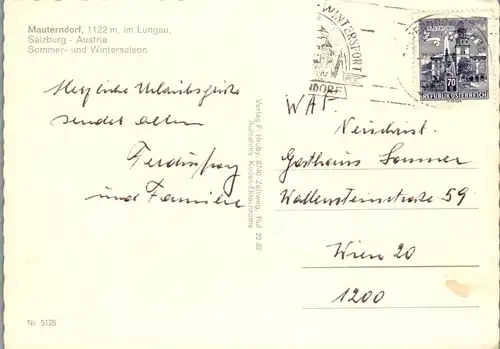 Mauterndorf, 1122 m, im Lungau,
Salzburg - Austria
Sommer- und Wintersaison
Herzliche Urlaubsgrüsse
sendet allen
und Familie
Verlag F. Hruby, 8740 Zeltweg, Ruf 22 60
Aufnahme: Kodak-Ektachrome
WINTERSPORT
NDORF
70
REPUBLIK ÖSTERREICH
WAT
Neuchrist.
Gasthaus Sommer
Wallensteinstraße 59
Wien 20
1200
Nr. 5125